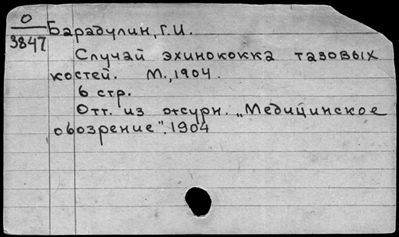 О
3847
Барадулин, Г.И.
Случай эхинококка тазовых
костей. М., 1904.
6 стр.
Отт. из журн. „Медицинское
обозрение", 1904